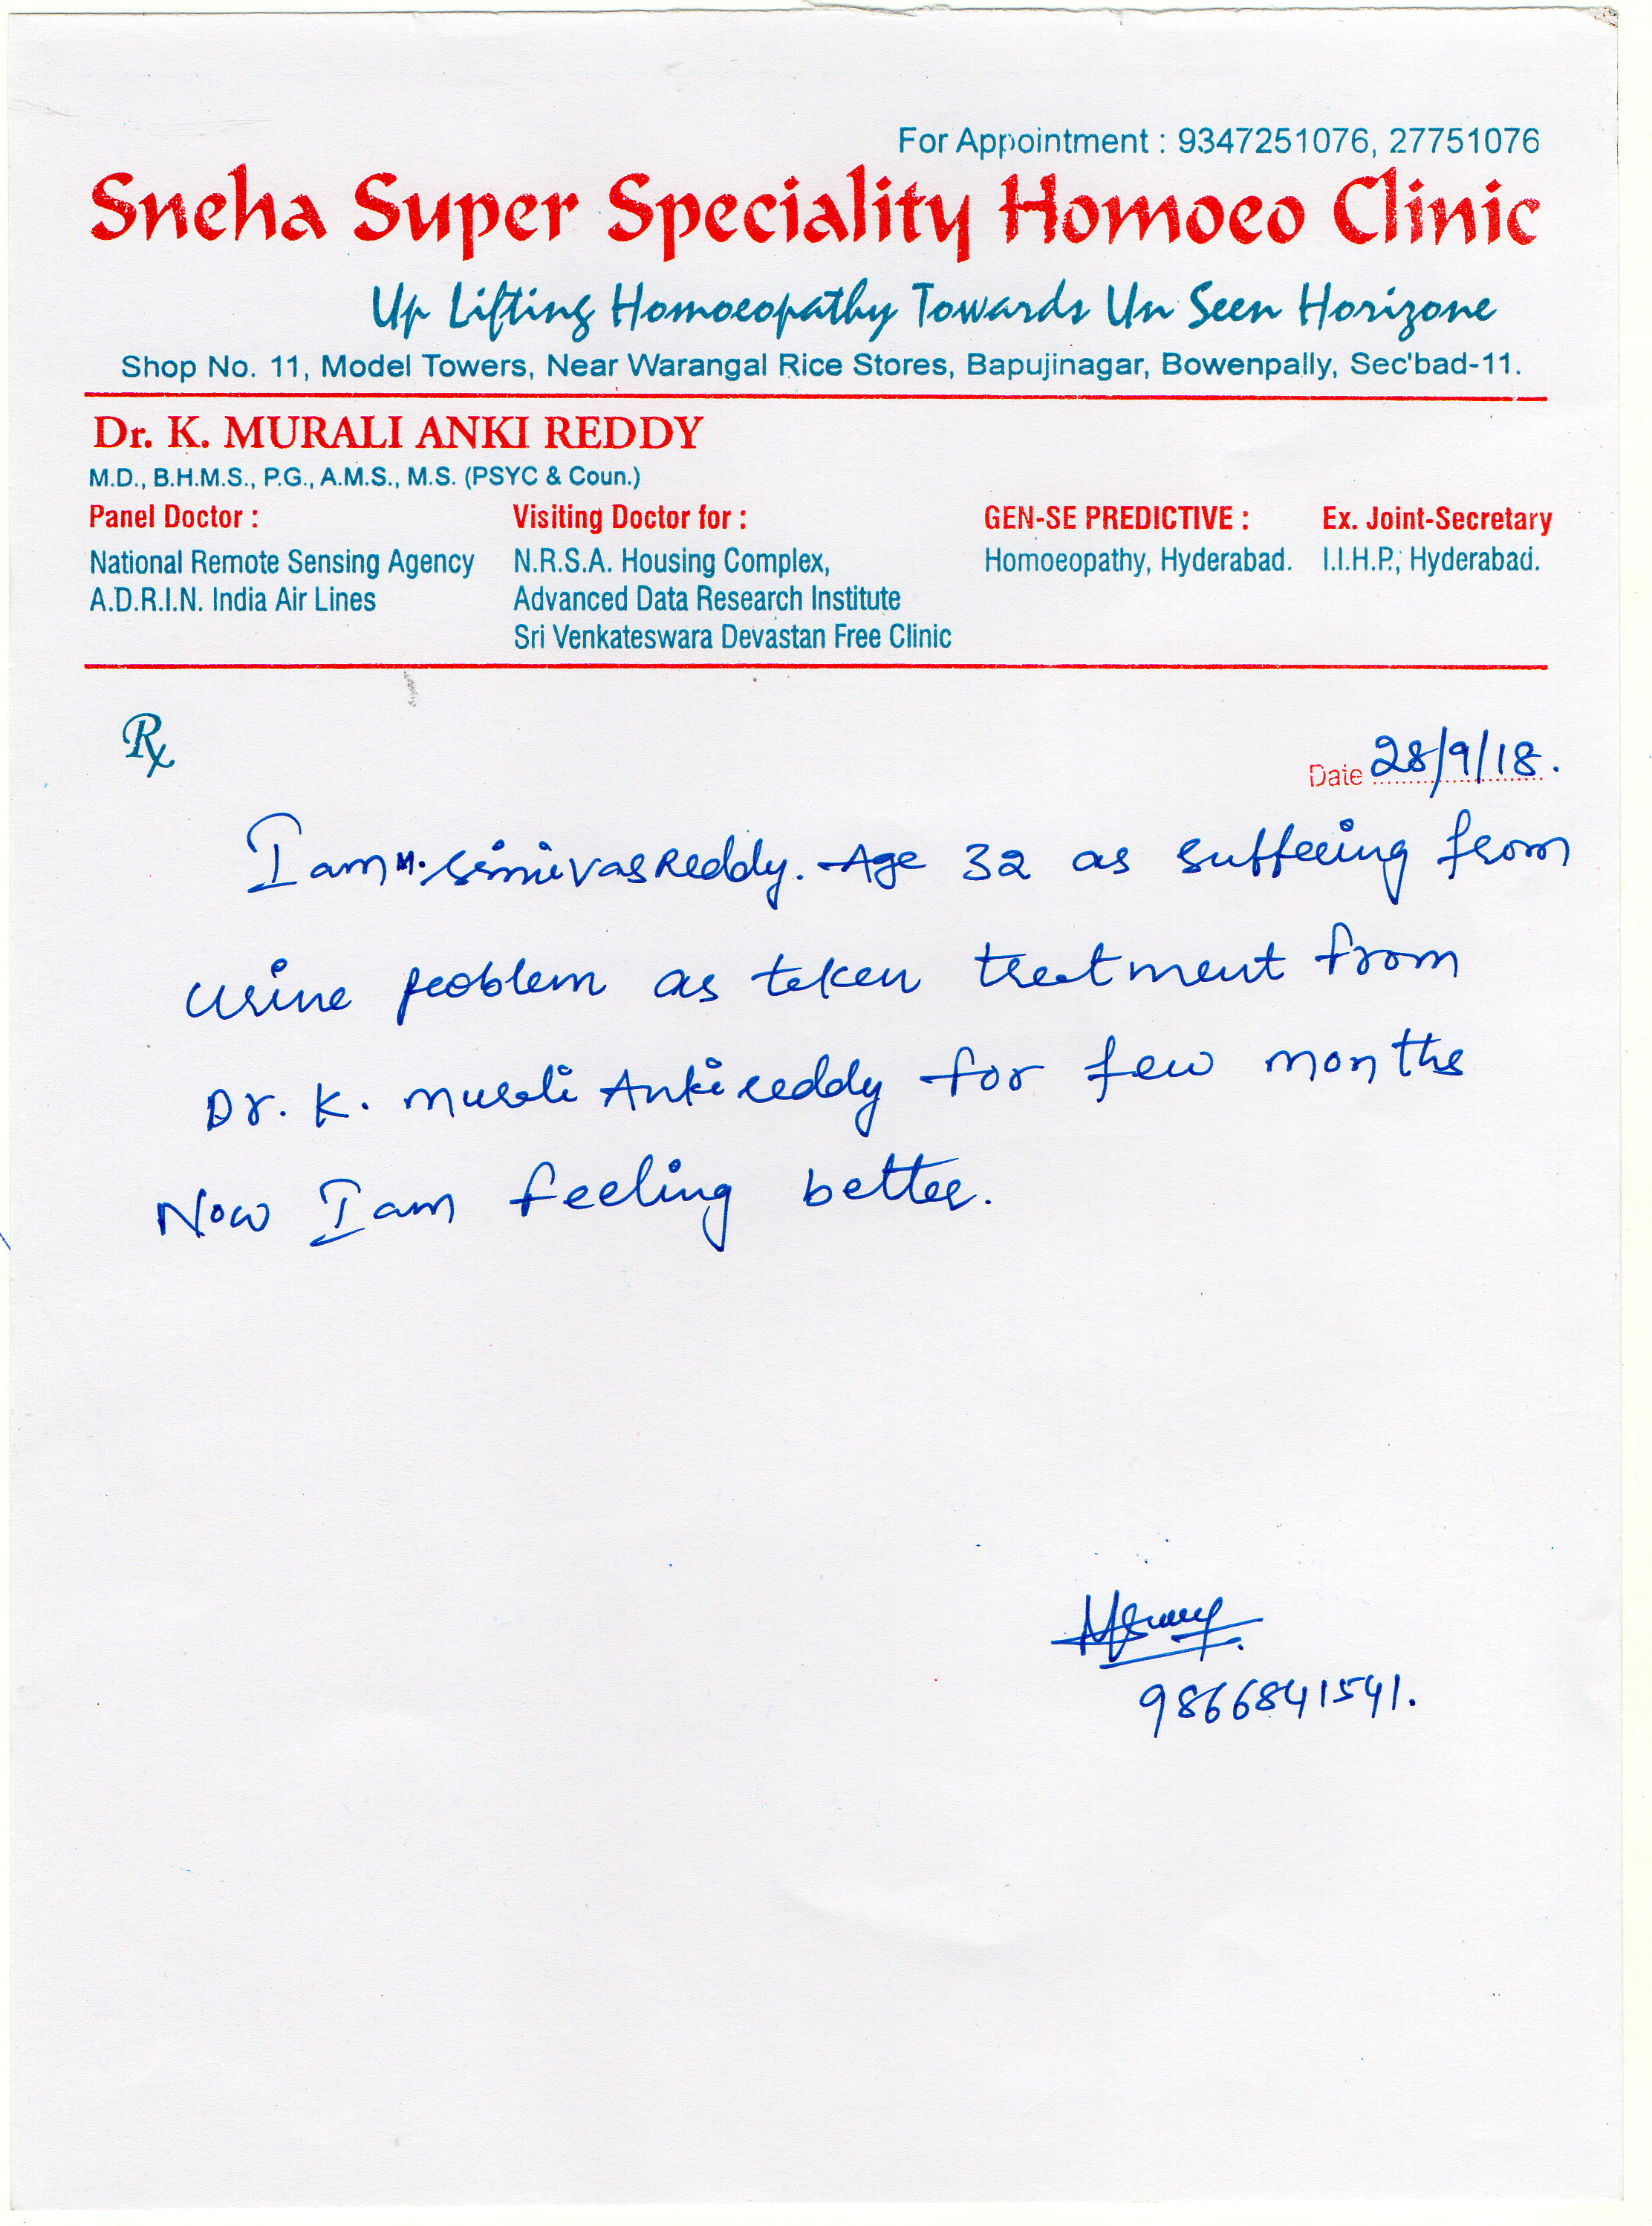 For Appointment : 9347251076, 27751076
Sneha Super Speciality Homoeo Clinic
Up Lifting Homoeopathy Towards Un Seen Horizone
Shop No. 11, Model Towers, Near Warangal Rice Stores, Bapujinagar, Bowenpally, Sec'bad-11.
Dr. K. MURALI ANKI REDDY
M.D., B.H.M.S., P.G., A.M.S., M.S. (PSYC & Coun.)
Panel Doctor : Visiting Doctor for : GEN-SE PREDICTIVE : Ex. Joint-Secretary
National Remote Sensing Agency N.R.S.A. Housing Complex, Homoeopathy, Hyderabad. I.I.H.P., Hyderabad.
A.D.R.I.N. India Air Lines Advanced Data Research Institute
Sri Venkateswara Devastan Free Clinic
Rx
Date 28/9/18.
I am M. Srinivas Reddy. Age 32 as suffering from
urine problem as teken treetment from
Dr. K. Murali Ankireddy for few months
Now I am feeling better.
9866841541.